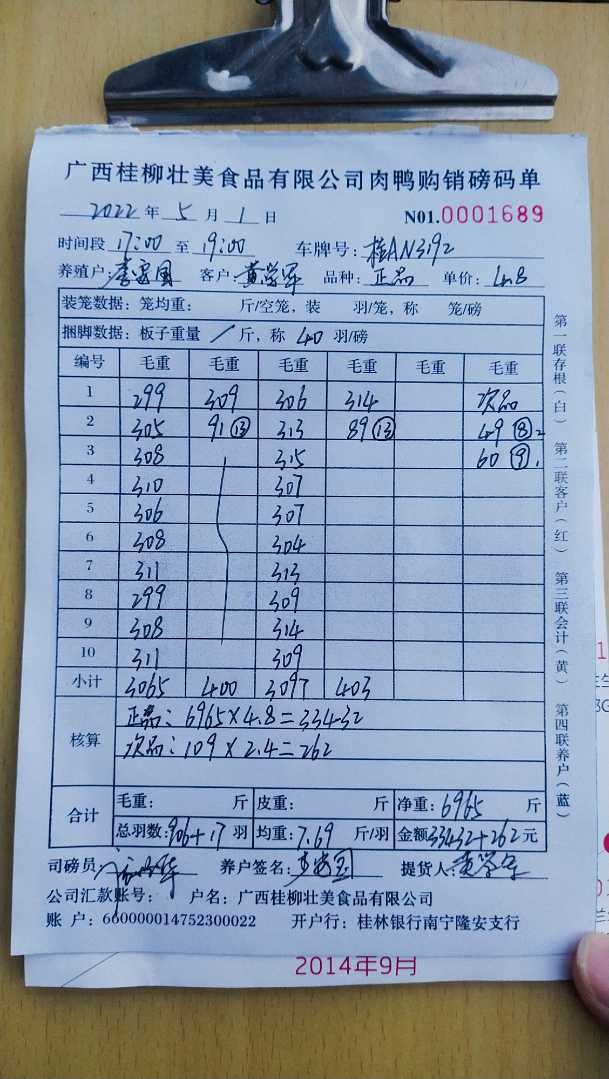 广西桂柳壮美食品有限公司肉鸭购销磅码单
2022年5月1日 N01.0001689
时间段 17:00 至 19:00 车牌号：桂AN3192
养殖户：李安国 客户：黄学军 品种：正品 单价：4.8
装笼数据：笼均重： 斤/空笼，装 羽/笼，称 笼/磅
捆脚数据：板子重量 / 斤，称 40 羽/磅
编号 毛重 毛重 毛重 毛重 毛重 毛重
1 299 309 306 314 次品
2 305 91⑬ 313 89⑬ 49⑧2
3 308 315 60⑨1
4 310 307
5 306 307
6 308 304
7 311 313
8 299 309
9 308 314
10 311 309
小计 3065 400 3097 403
核算
正品：6965×4.8=33432
次品：109×2.4=262
合计
毛重： 斤 皮重： 斤 净重：6965 斤
总羽数：906+17 羽 均重：7.69 斤/羽 金额33432+262元
司磅员： 养户签名：李安国 提货人：黄学军
公司汇款账号： 户名：广西桂柳壮美食品有限公司
账 户：660000014752300022 开户行：桂林银行南宁隆安支行
第一联存根（白） 第二联客户（红） 第三联会计（黄） 第四联养户（蓝）
2014年9月